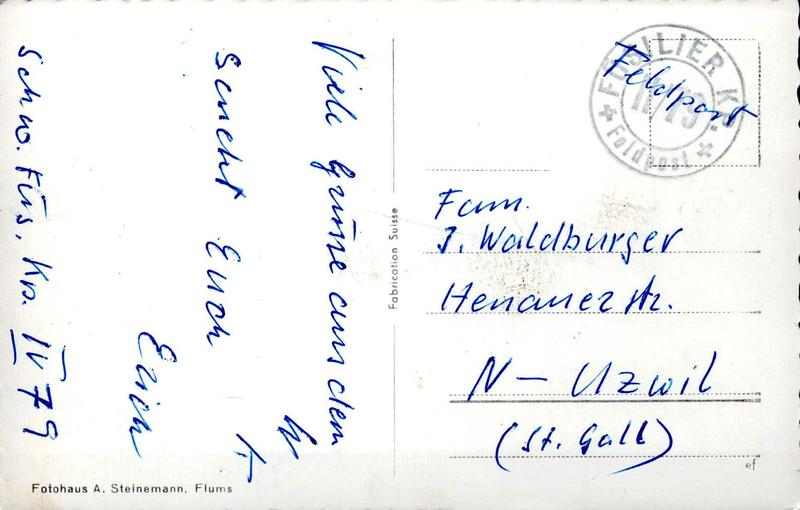 Viele Grüsse aus dem
W K
sendet Euch
Erich
Schw. Füs. Kp. IV 79
Fotohaus A. Steinemann, Flums
Fabrication Suisse
FÜSILIER KP.
II/79
Feldpost
Feldpost
Fam.
J. Waldburger
Henauerstr.
N - Uzwil
(St. Gall)
ef